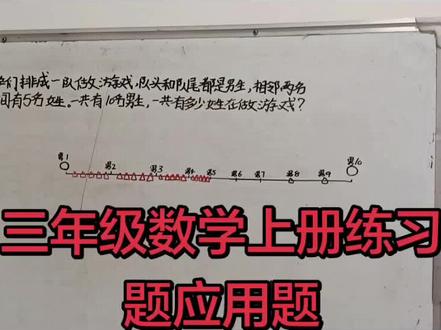 们排成一队做游戏,队头和队尾都是男生,相邻两名
间有5名女生。一共有10名男生,一共有多少女生在做游戏?
男1 男2 男3 男4 男5 男6 男7 男8 男9 男10
三年级数学上册练习
题应用题